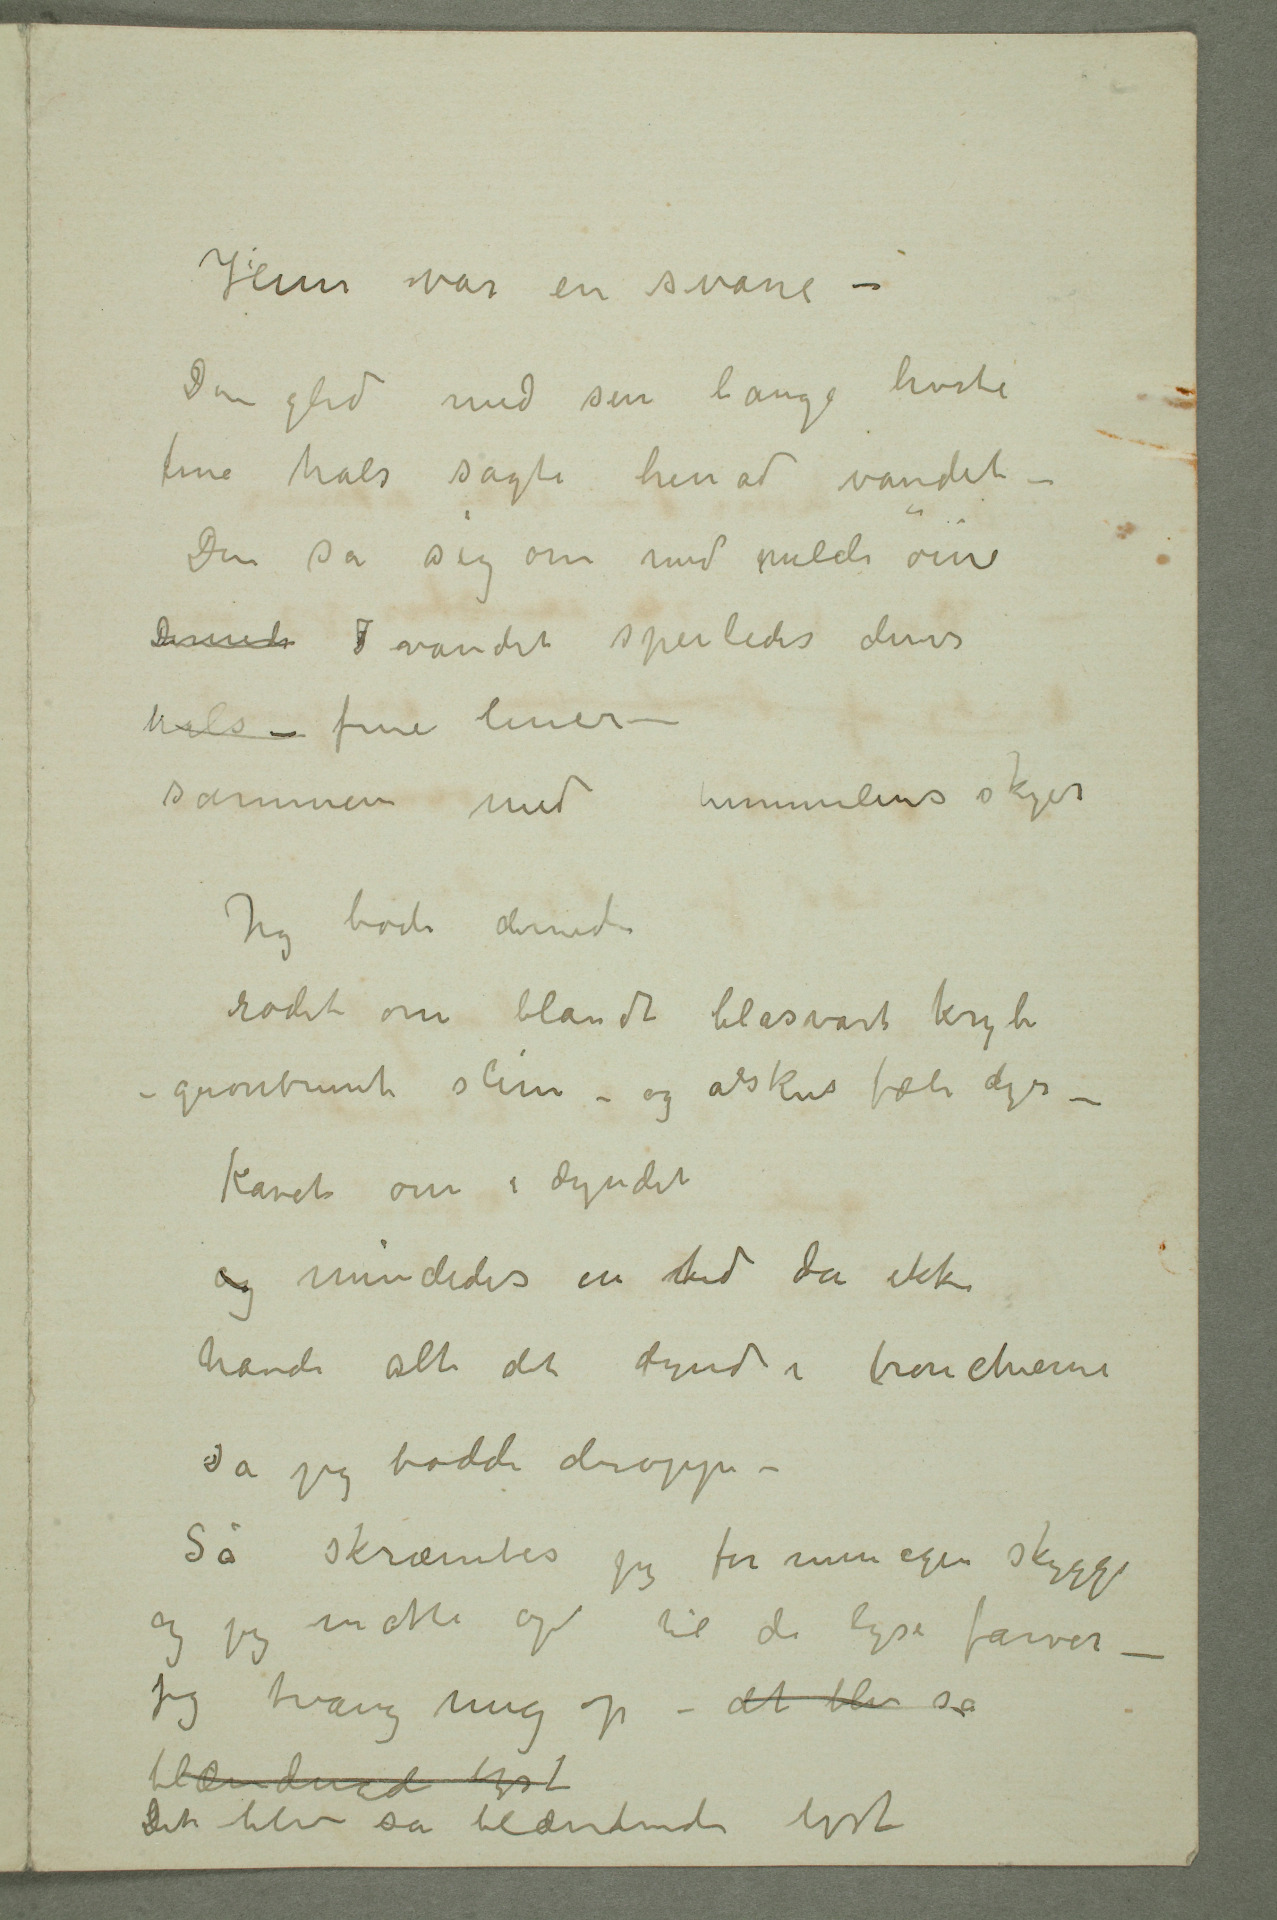 Hun var en svane –
Den gled med sin lange hvite
fine hals sagte hen ad vandet –
Den så sig om med milde öine
Dernede I vandet speiledes dens
hals – fine linier –
sammen med himmelens skyer
Jeg bode dernede
rodet om blandt blåsvart kryb
– grønbrunt slim – og alskens fæle dyr –
Kavet om i dyndet
og mindedes en tid da ikke
havde alt det dynd i bronchierne
Da jeg bodde deroppe –
Så skræmtes jeg for min egen skygge
og jeg måtte op til de lyse farver –
Jeg tvang mig op – det blev så
blændende lyst
Det blev så blændende lyst